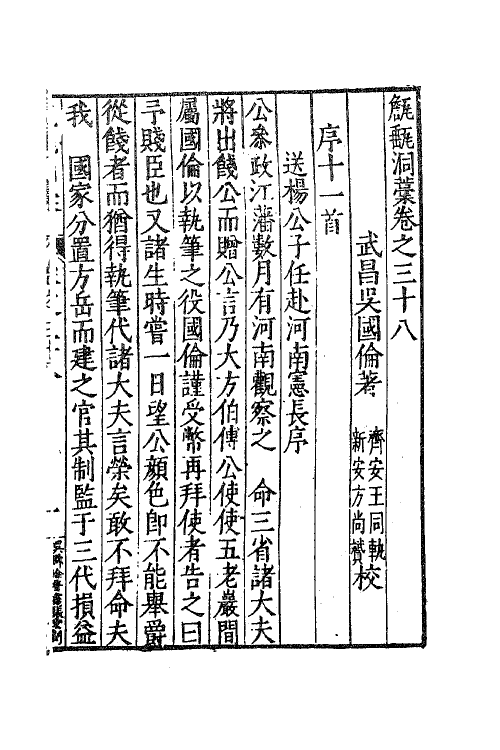 甔甀洞藁卷之三十八
武昌吳國倫著 齊安王同軌 新安方尚贇 校
序十一首
送楊公子任赴河南憲長序
公叅政江藩數月有河南觀察之 命三省諸大夫
將出餞公而贈公言乃大方伯傅公使使五老巖間
屬國倫以執筆之役國倫謹受幣再拜使者告之曰
予賤臣也又諸生時嘗一日望公顏色卽不能舉爵
從餞者而猶得執筆代諸大夫言榮矣敢不拜命夫
我 國家分置方岳而建之官其制監于三代損益